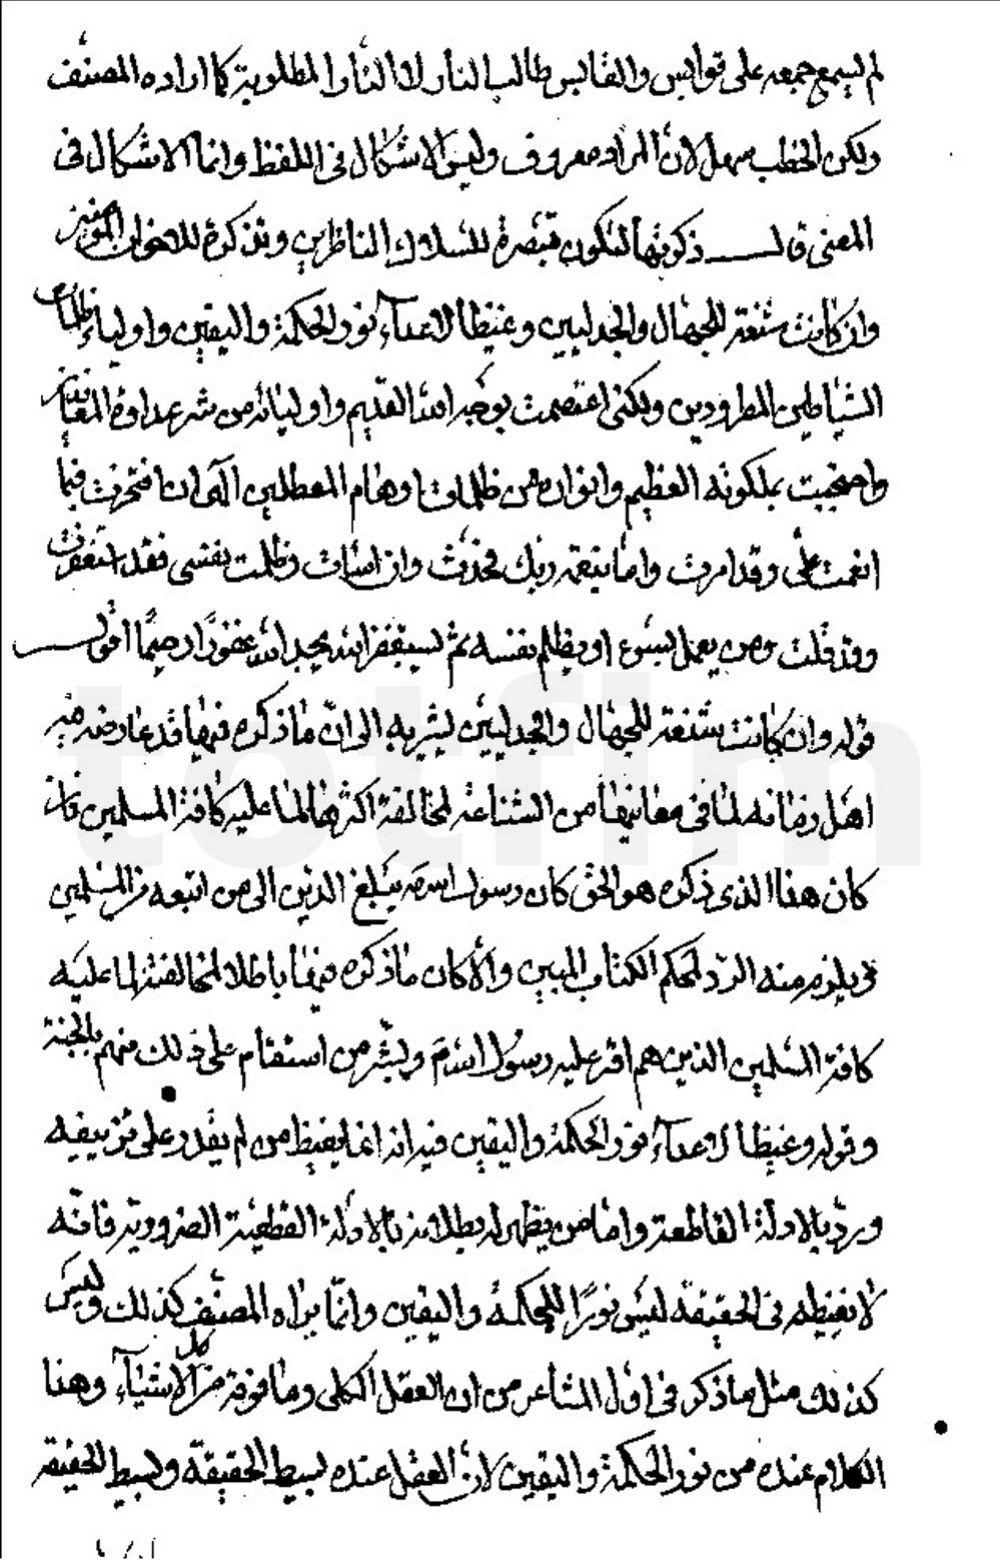 لم يسمع جمعه على قوابس والقابس طالب النار لا النار المطلوبة كما اراده المصنف
ولكن الخطب سهل لان المراد معروف وليس الاشكال فى اللفظ وانما الاشكال فى
المعنى قال ذكرتها لتكون تبصرة للسلاك الناظرين وتذكرة للاخوان المؤمنين
وان كانت شنعة للجهال والجدليين وغيظا لاعداء نور الحكمة واليقين واولياء ظلمات
الشياطين المطرودين ولكنى اعتصمت بوجه الله القديم واوليائه من شر عداوة المعاندين
واحتجبت بملكوته العظيم وانواره من ظلمات اوهام المعطلين الهى ان افتخرت فبما
انعمت على وقد امرت واما بنعمة ربك فحدث وان اسات وظلمت نفسى فقد استغفرت
وقد قلت ومن يعمل سوء او يظلم نفسه ثم يستغفر الله يجد الله غفورًا رحيمًا اقول
قوله وان كانت شنعة للجهال والجدليين يشير به الى ان ما ذكره فيها قد عارضه فيه
اهل زمانه لما فى معانيها من الشناعة لمخالفة اكثرها لما عليه كافة المسلمين فان
كان هذا الذى ذكره هو الحق كان رسول الله ص م يبلغ الدين الى من اتبعه من المسلمين
ويلزم منه الرد لمحكم الكتاب المبين والا كان ما ذكره فيها باطلا لمخالفته لما عليه
كافة المسلمين الذين هم اقر عليه رسول الله ص م وبشر من استقام على ذلك منهم بالجنة
وقوله وغيظا لاعداء نور الحكمة واليقين فيه انه انما يغيظ من لم يقدر على تزييفه
ورده بالادلة القاطعة واما من يظهر له بطلانه بالادلة القطعية الضرورية فانه
لا يغيظه فى الحقيقة ليس نورًا للحكمة واليقين وانما يراه المصنف كذلك وليس
كذلك مثل ما ذكر فى اول المشاعر من ان العقل الكلى وما فوقه كل الاشياء وهذا
الكلام عنده من نور الحكمة واليقين لان العقل عنده بسيط الحقيقة وبسيط الحقيقة
totfim